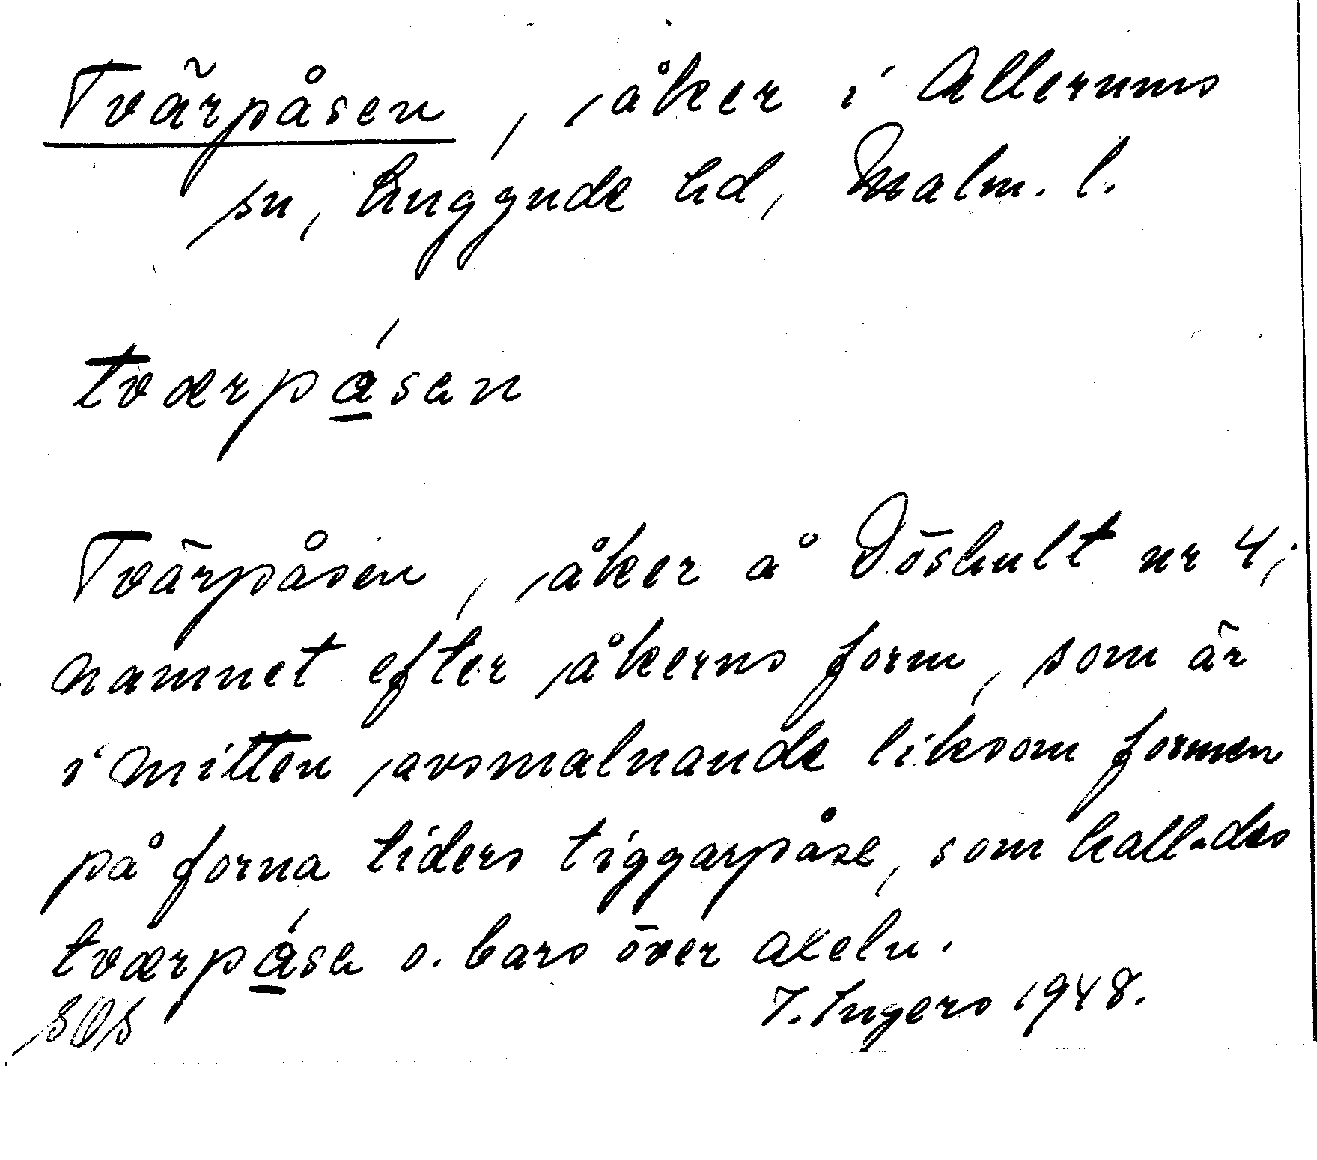 Tvärpåsen, åker i Allerums
sn, Luggude hd, Malm. l.
tværpá̱san
Tvärpåsen, åker å Döshult nr 4;
namnet efter åkerns form, som är
i mitten avsmalnande liksom formen
på forna tiders tiggarpåse, som kallades
tværpá̱sa o. bars över axeln.
I. Ingers 1948.